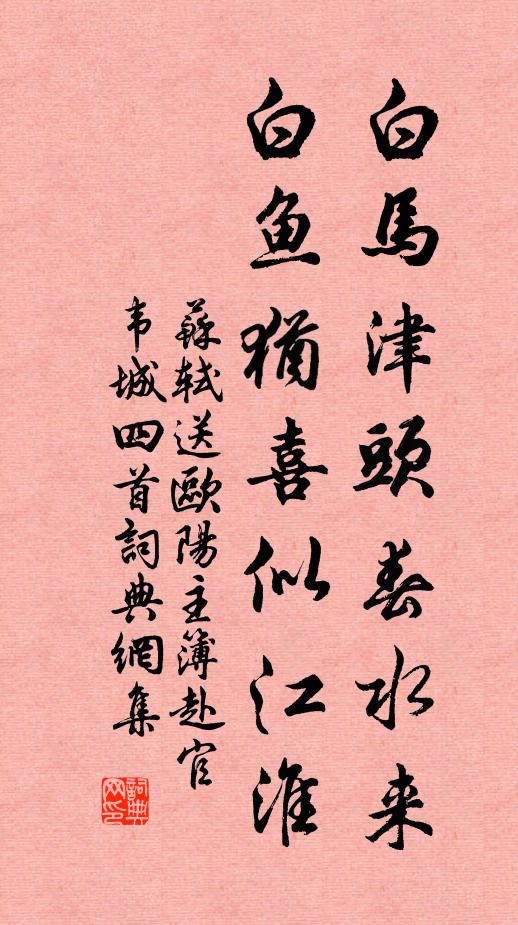 白馬津頭春水来
白鱼猶喜似江淮
蘇軾送歐陽主簿赴官
韦城四首詞典網集
詞典网印